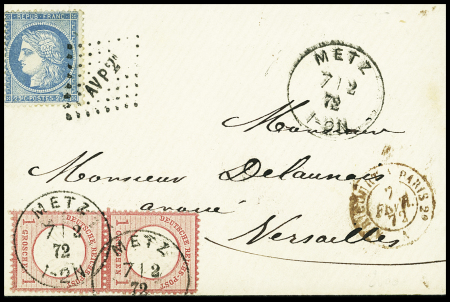 REPUB. FRANC.
25 C. POSTES 25
AVP2°
METZ
7 | 2
72
1-2N.
Monsieur
Monsieur Delaunais
avoué
Versailles
PARIS
2
72
METZ
7 | 2
72
1-2N
METZ
7 | 2
72
DEUTSCHE REICHS-POST
1 GROSCHEN 1
DEUTSCHE REICHS-POST
1 GROSCHEN 1